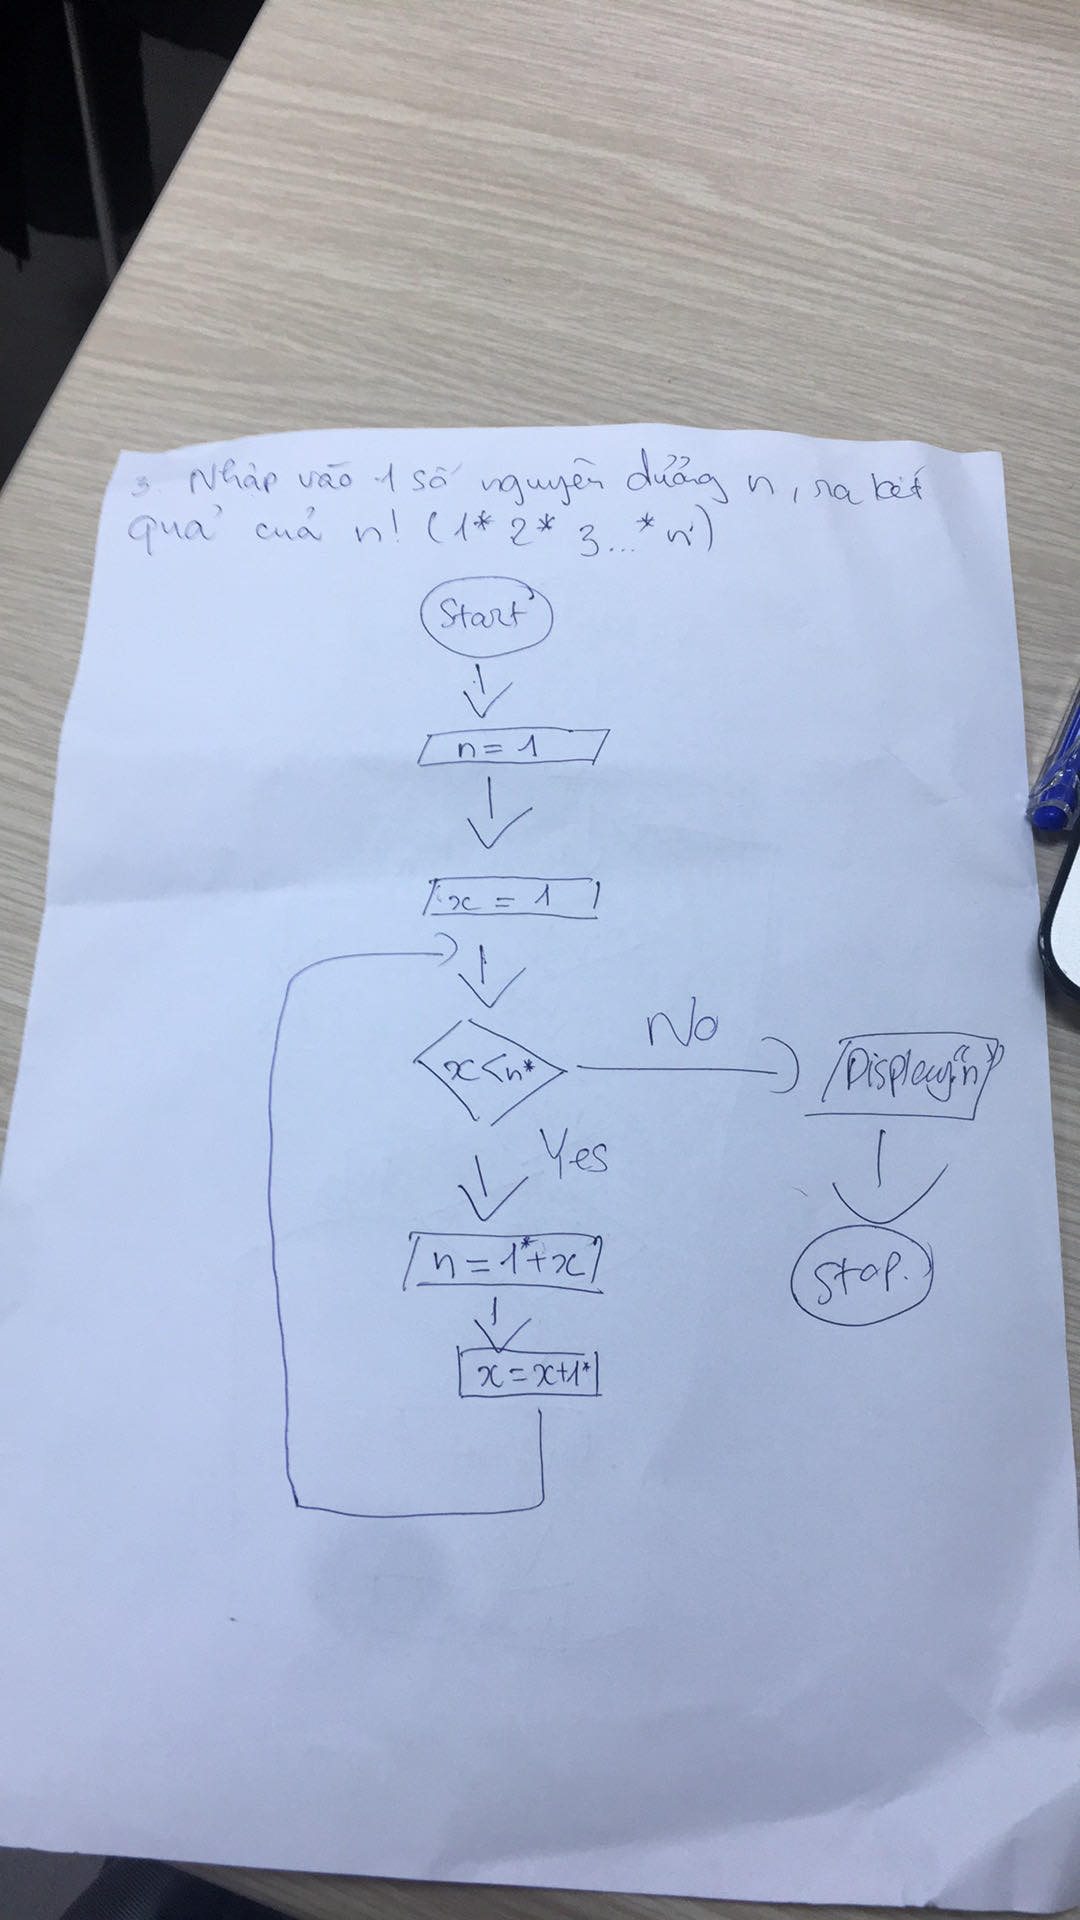 3. Nhập vào 1 số nguyên dương n, ra kết
quả của n! (1* 2* 3...* n)
Start
n = 1
x = 1
x < n*
No
Display "n"
Yes
n = 1* + x
Stop.
x = x+1*